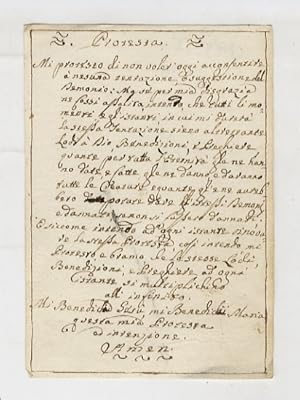 Protesta
Mi protesto di non voler oggi acconsentire
à nesuna tentazione, ò sugestione del
Demonio; Mà se per mia disgrazia
ne fossi assalita, intendo che tutti li mo-
menti, e gl'istanti in cui mi durerà
la stessa Tentazione sieno altrettante
Lodi à Dio, Benedizioni, e Preghiere,
quante per tutta l'Eternità gle ne han-
no date, e fatte, gle ne danno, e daranno
tutte le Creature, e quante gle ne avreb-
bero
dannati
E siccome intendo ad ogni istante rinova-
re la stessa Protesta, così intendo mi
Protesto, e bramo che le stesse Lodi,
Benedizioni, e Preghiere ad ogni
istante si multiplichino
all' infinito.
Mi Benedica Gesù, mi Benedichi Maria
questa mia Protesta
ed intenzione.
Amen.